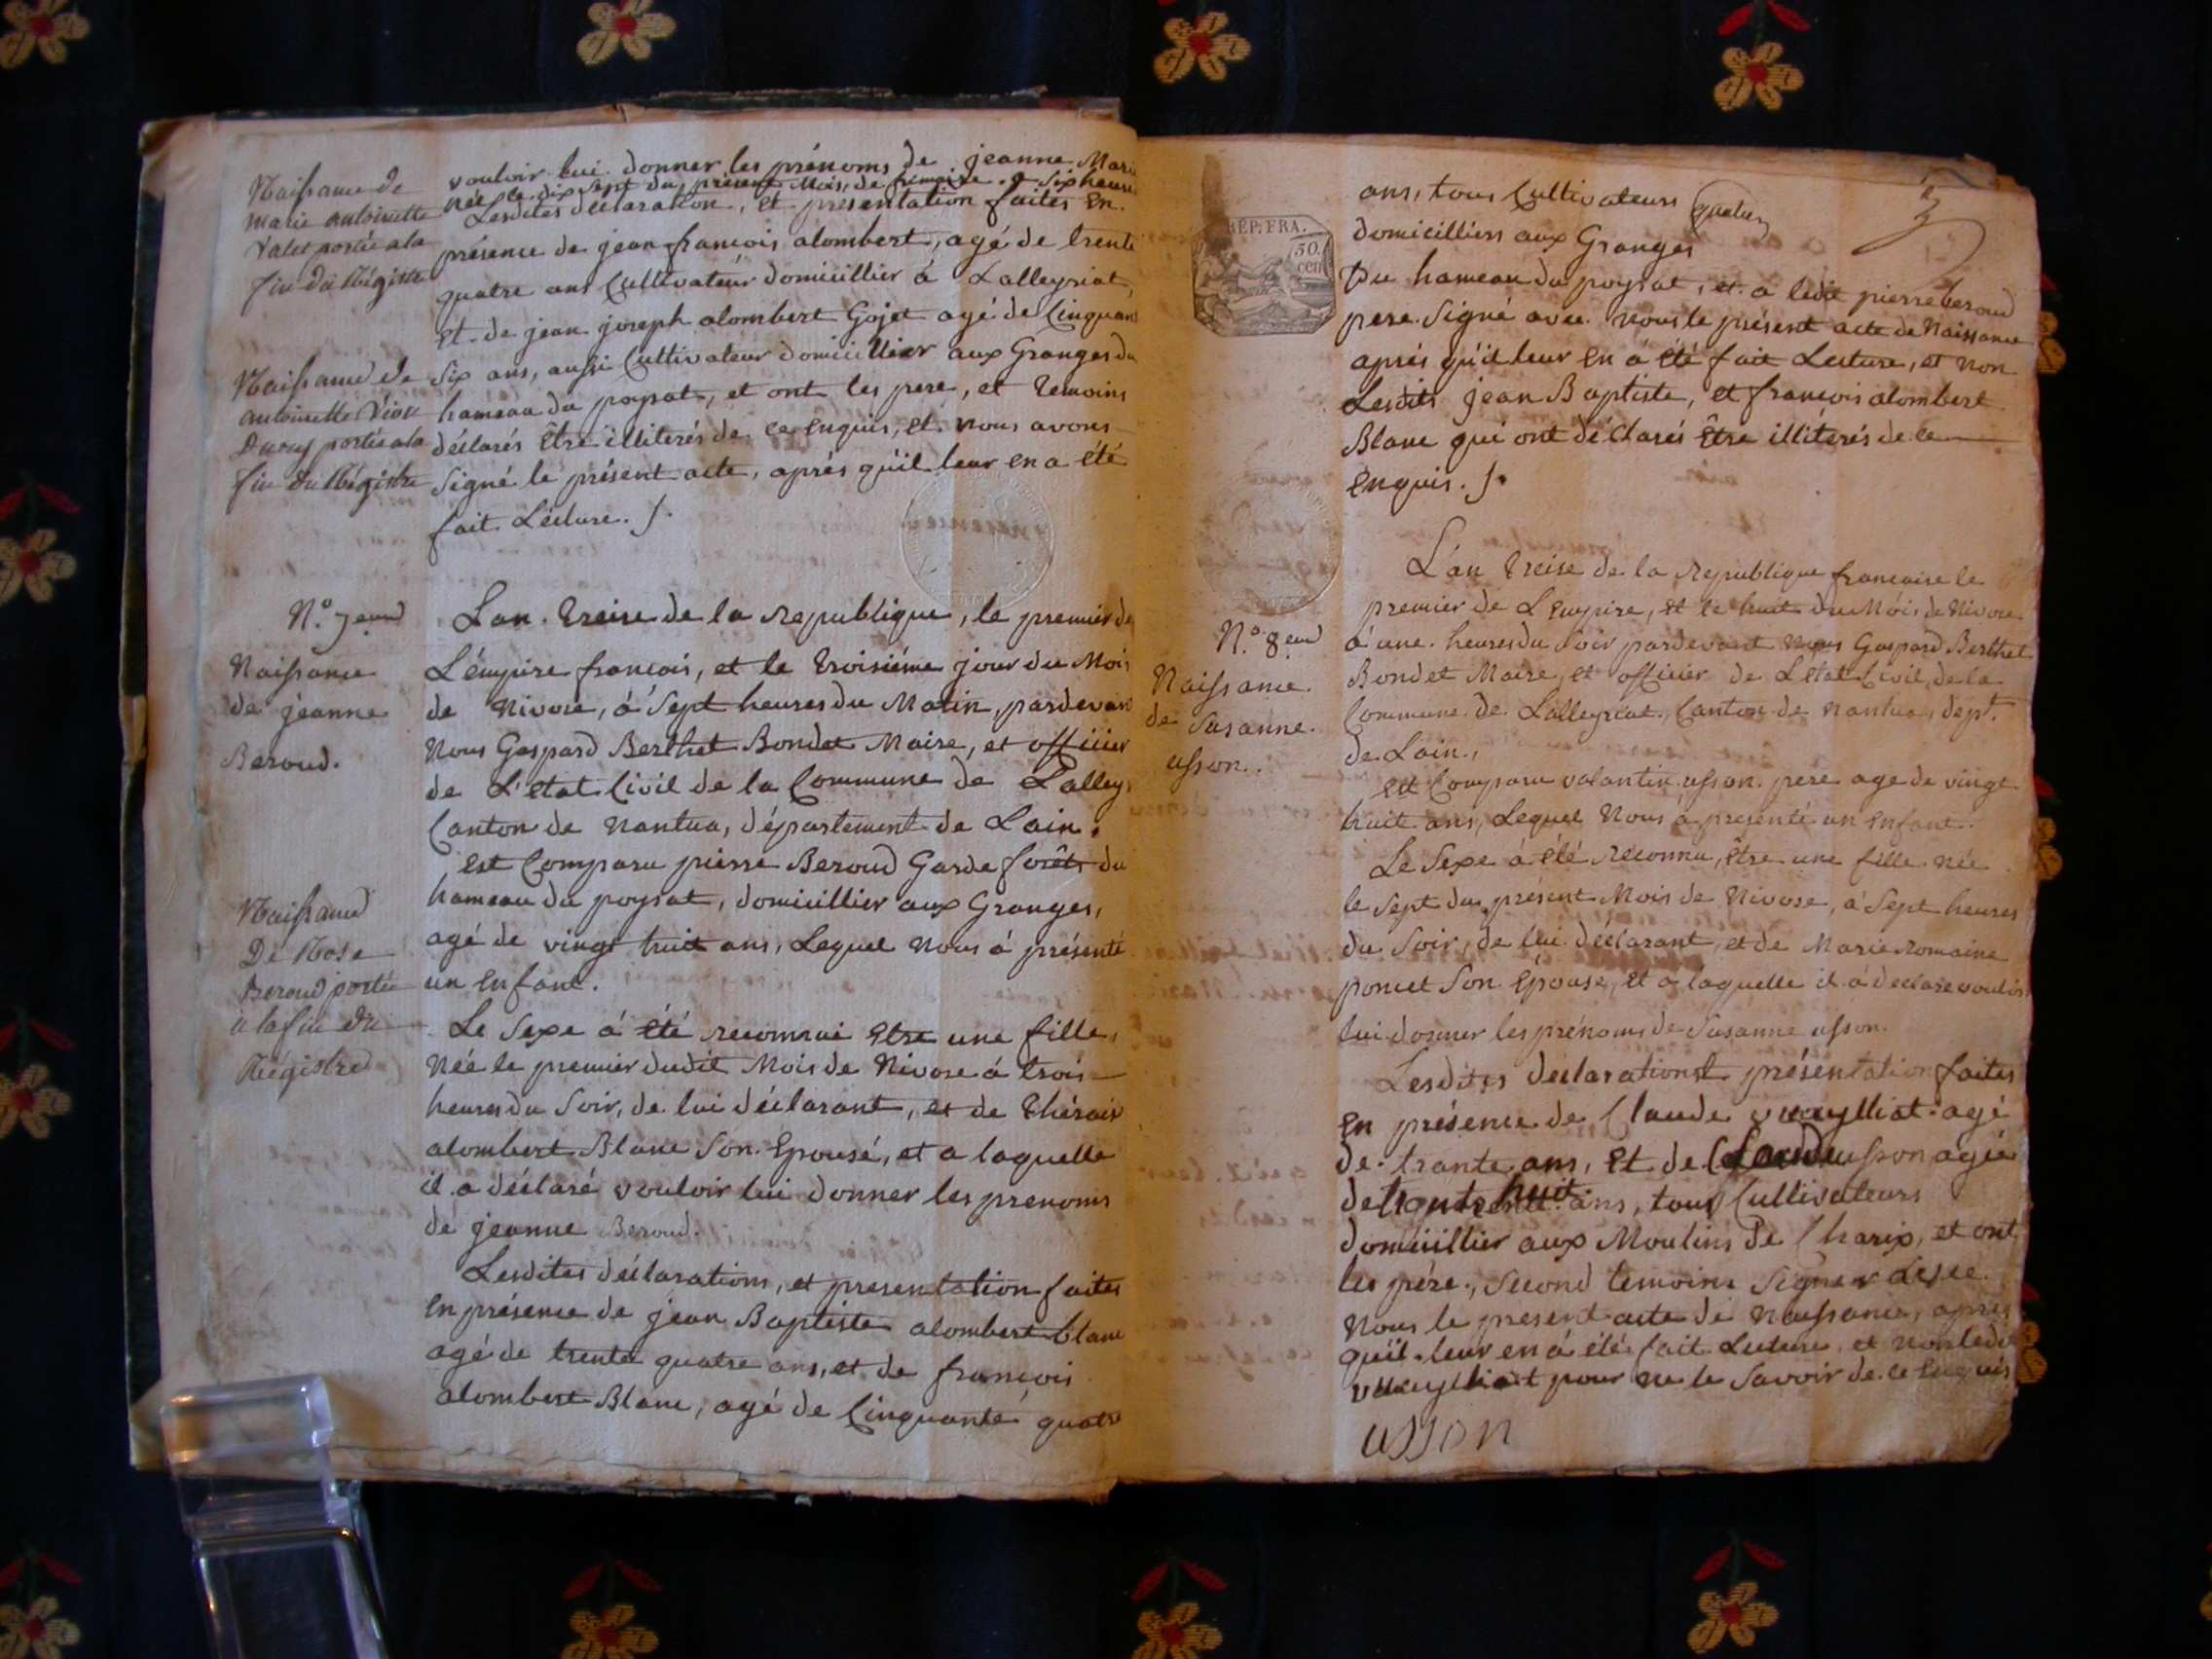 Naissance de
marie antoinette
Valet portée a la
fin du Régistre
Naissance de
antoinette
portée a la
fin du Régistre
N.o 7
Naissance
de jeanne
Beroud.
Naissance
De Rose
Beroud portée
a la fin du
Régistre
vouloir lui donner les prénoms de jeanne Marie
née le dix sept du présent Mois de frimaire a Six heures
Lesdites déclaration, et présentation faites En
présence de jean françois alombert, agé de trente
quatre ans Cultivateur domicillier á Lalleyriat,
Et de jean joseph alombert Gojet agé de Cinquan
Six ans, aussi Cultivateur domicillier aux Granges du
hameau du poysat, et ont les pere, et temoins
déclarés Être illiterés de ce Enquis, et nous avons
Signé le présent acte, aprés qu'il leur en a été
fait Lécture. /.
L'an treise de la Republique, le premier de
L'émpire francois, et le troisiéme jour du Mois
de Nivose, á Sept heures du Matin, pardevan
Nous Gaspard Berthet Bondet Maire, et officier
de L'état Civil de la Commune de Lalley
Canton de Nantua, département de Lain.
est Comparu pierre Beroud Garde forêts du
hameau du poysat, domicillier aux Granges,
agé de vingt huit ans, Lequel Nous á présenté
un Enfant.
Le Sexe á été reconnui Etre une fille,
Née le premier dudit Mois de Nivose á trois
heures du Soir, de lui déclarant, et de thérais
alombert Blanc Son Epousé, et a laquelle
il a déclaré vouloir lui donner les prenoms
de jeanne Beroud.
Lesdites déclarations, et presentation faites
En présence de jean Baptiste alombert blanc
agé de trente quatre ans, et de françois
alombert Blanc, agé de Cinquante quatre
3
quatre
REP. FRA.
50.
cen
ans, tous Cultivateurs
domicilliers aux Granges
Du hameau du poysat, et a ledit pierre beroud
pere Signé avec nous le présent acte de Naissance
aprés qu'il leur en á été fait Lecture, et non
Lesdits jean Baptiste, et francois alombert
Blanc qui ont déclarés Être illitérés de ce
enquis. /.
N.o 8
Naissance
de Susanne
usson.
L'an treise de la Republique françaisé le
premier de L'Empire, et le huit du Mois de Nivose
á une heures du Soir pardevant Nous Gaspard Berthet
Bondet Maire, et officier de L'état Civil, de la
Commune de Lalleyriat, Canton de nantua, dept.
de Lain.
est Comparu valantin usson pere age de vingt
huit ans, Lequel Nous á presenté un Enfant.
Le Sexe á été reconnu, être une fille née
le Sept du présent Mois de Nivose, á Sept heures
du Soir, de lui déclarant, et de Marie Romaine
poncet Son Epouse, et a laquelle il á declare vouloir
lui donner les prénoms de Susanne usson.
Lesdites déclarations et présentation faites
En présence de Claude vuaylliat agé
de trante ans, et de Claude usson agée
de trante huit ans, tous Cultivateurs
domicillier aux Moulins De Charix, et ont
les pére, Second temoins Signer avec
Nous le present acte de Naissance, aprés
qu'il leur en á été fait Lecture, et non ledit
vuaylliat pour ne le Savoir de ce Enquis
usson